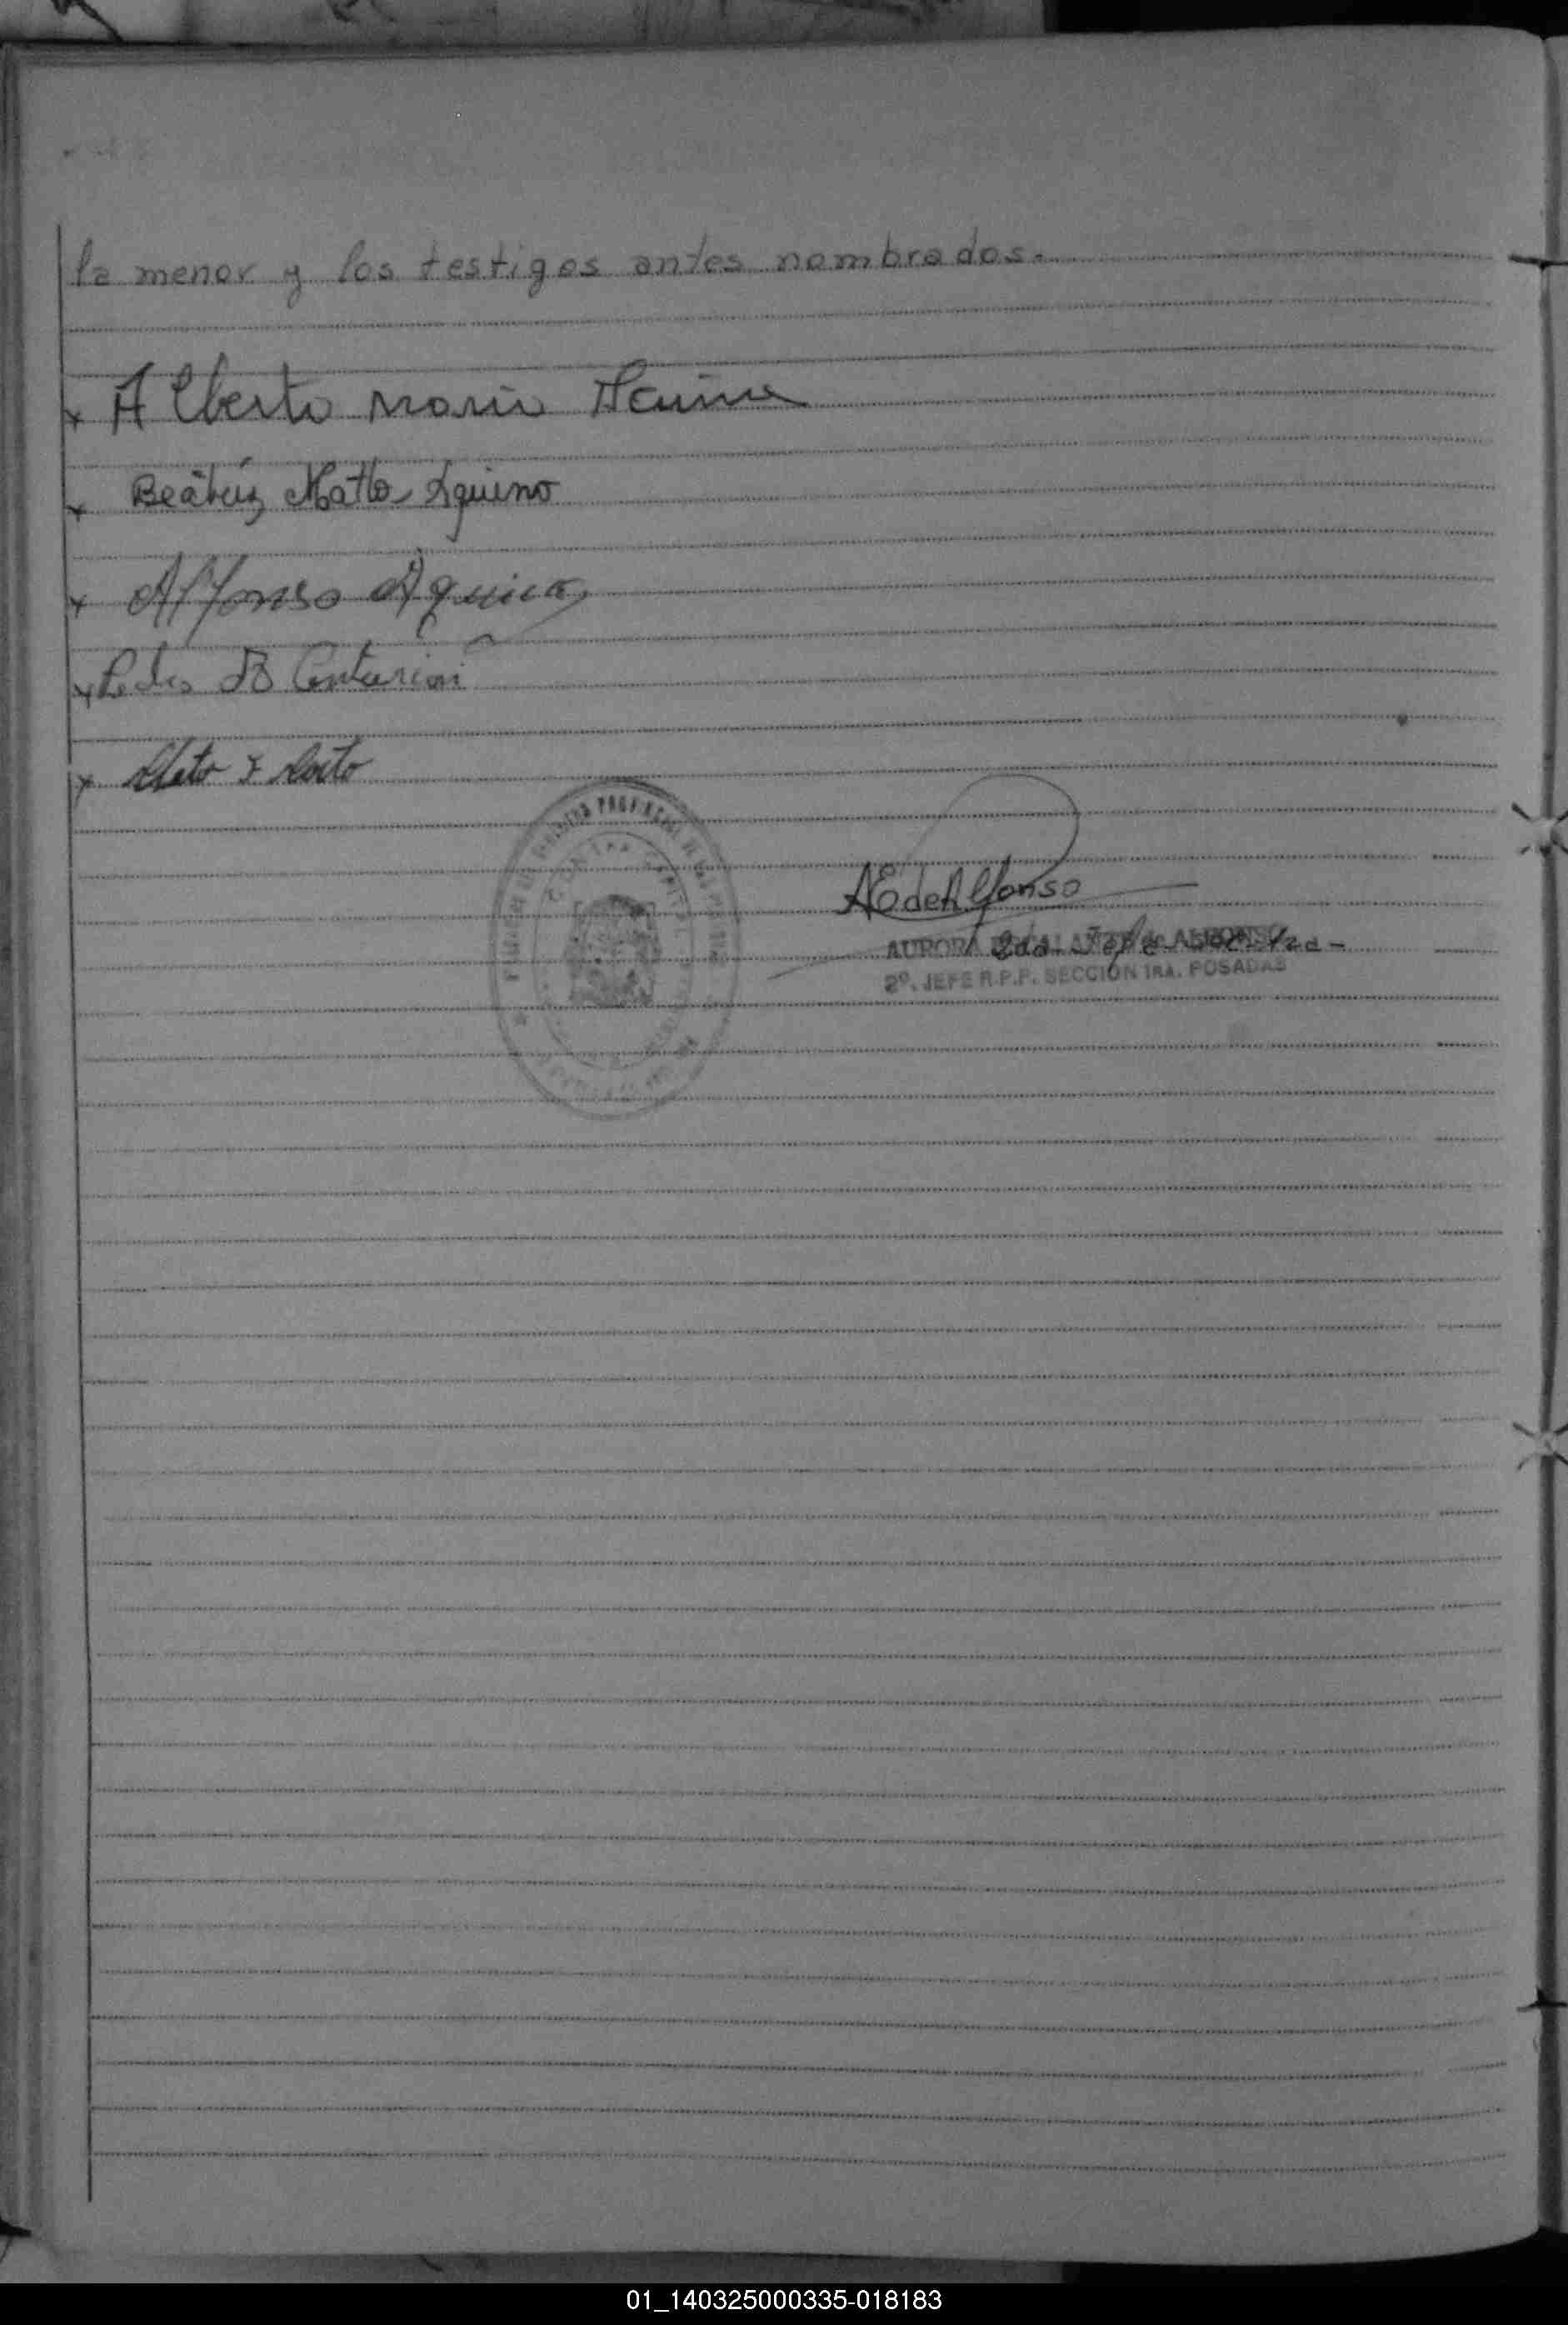 la menor y los testigos antes nombrados.-
x Alberto María
x Beátriz Matto Aquino
x Alfonso Aquino
x Pedro B Centurión
x
AE de Alfonso
AURORA de ALFONSO 2da Jefe Secc 1ra-
2º. JEFE R.P.P. SECCIÓN 1RA. POSADAS
01_140325000335-018183